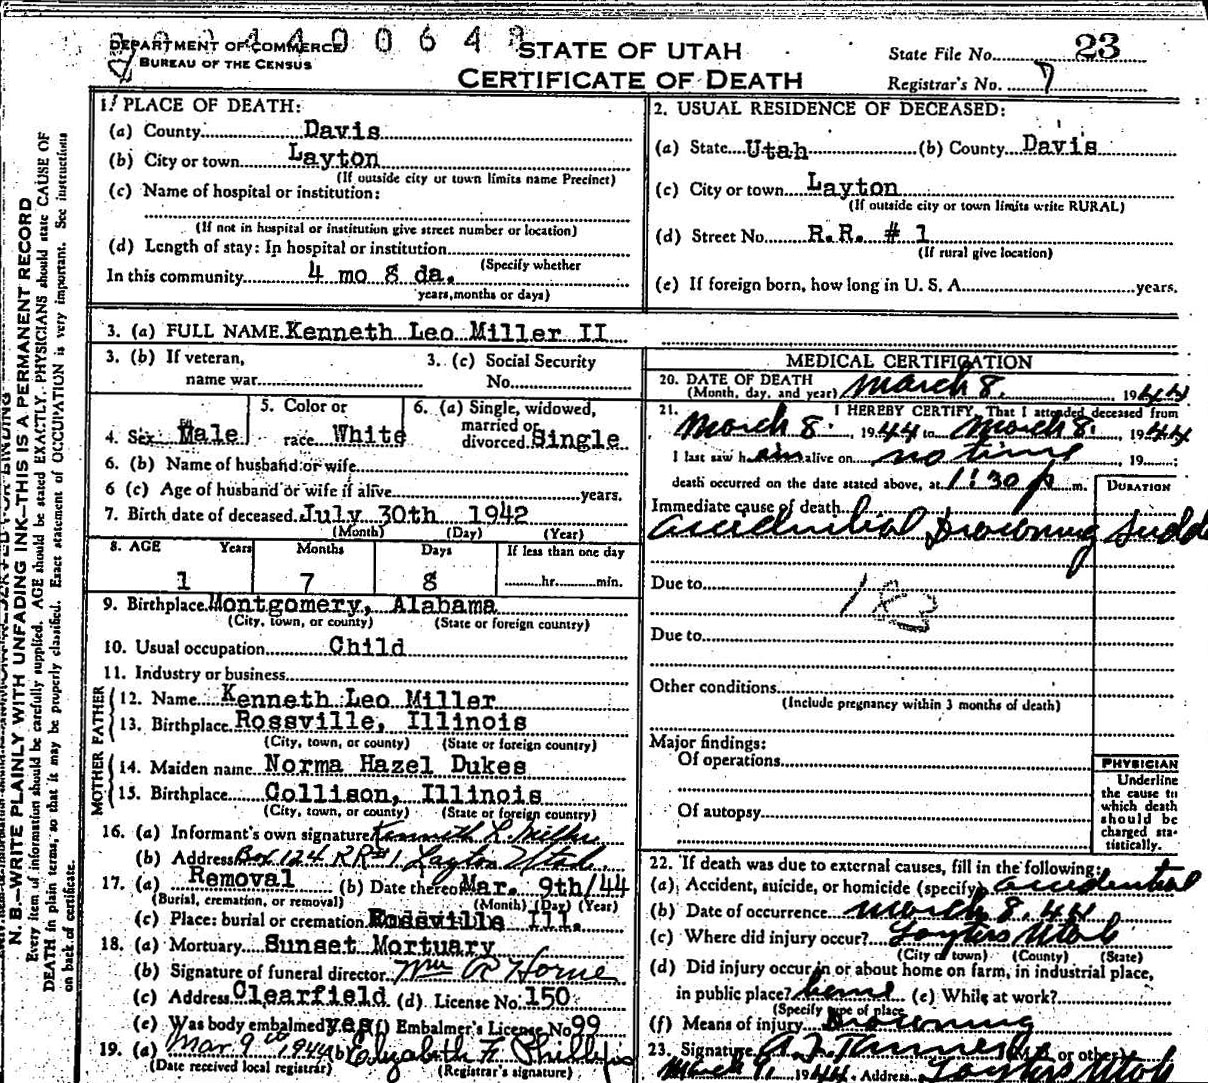 DEPARTMENT OF COMMERCE
BUREAU OF THE CENSUS
STATE OF UTAH
CERTIFICATE OF DEATH
State File No. 23
Registrar's No. 7
N. B.—WRITE PLAINLY WITH UNFADING INK—THIS IS A PERMANENT RECORD
Every item of information should be carefully supplied. AGE should be stated EXACTLY. PHYSICIANS should state CAUSE OF
DEATH in plain terms, so that it may be properly classified. Exact statement of OCCUPATION is very important. See instructions
on back of certificate.
1. PLACE OF DEATH:
(a) County Davis
(b) City or town Layton
(If outside city or town limits name Precinct)
(c) Name of hospital or institution:
(If not in hospital or institution give street number or location)
(d) Length of stay: In hospital or institution
(Specify whether
In this community 4 mo 8 da.
years, months or days)
2. USUAL RESIDENCE OF DECEASED:
(a) State Utah (b) County Davis
(c) City or town Layton
(If outside city or town limits write RURAL)
(d) Street No. R.R. # 1
(If rural give location)
(e) If foreign born, how long in U. S. A. years.
3. (a) FULL NAME Kenneth Leo Miller II
3. (b) If veteran,
name war
3. (c) Social Security
No.
4. Sex Male
5. Color or
race White
6. (a) Single, widowed,
married or
divorced Single
6. (b) Name of husband or wife
6 (c) Age of husband or wife if alive years.
7. Birth date of deceased July 30th 1942
(Month) (Day) (Year)
8. AGE Years Months Days If less than one day
1 7 8 hr. min.
9. Birthplace Montgomery, Alabama
(City, town, or county) (State or foreign country)
10. Usual occupation Child
11. Industry or business
FATHER
12. Name Kenneth Leo Miller
13. Birthplace Rossville, Illinois
(City, town, or county) (State or foreign country)
MOTHER
14. Maiden name Norma Hazel Dukes
15. Birthplace Collison, Illinois
(City, town, or county) (State or foreign country)
16. (a) Informant's own signature Kenneth L. Miller
(b) Address Box 124 RR#1 Layton Utah
17. (a) Removal (b) Date thereof Mar. 9th/44
(Burial, cremation, or removal) (Month) (Day) (Year)
(c) Place: burial or cremation Rossville Ill.
18. (a) Mortuary Sunset Mortuary
(b) Signature of funeral director Wm R Horne
(c) Address Clearfield (d) License No. 150
(e) Was body embalmed yes (f) Embalmer's License No 99
19. (a) Mar 9th 1944 (b) Elizabeth F. Phillips
(Date received local registrar) (Registrar's signature)
MEDICAL CERTIFICATION
20. DATE OF DEATH
(Month, day, and year) March 8. 1944
21. I HEREBY CERTIFY, That I attended deceased from
March 8. 1944 to March 8. 1944
I last saw him alive on no time 19
death occurred on the date stated above, at 1:30 p m.
DURATION
Immediate cause of death
accidential Drowning Sudde
Due to
183
Due to
Other conditions
(Include pregnancy within 3 months of death)
Major findings:
Of operations
Of autopsy
PHYSICIAN
Underline
the cause to
which death
should be
charged sta-
tistically.
22. If death was due to external causes, fill in the following:
(a) Accident, suicide, or homicide (specify) accidential
(b) Date of occurrence March 8. 44
(c) Where did injury occur? Layton Utah
(City or town) (County) (State)
(d) Did injury occur in or about home on farm, in industrial place,
in public place? home (e) While at work?
(Specify type of place
(f) Means of injury Drowning
23. Signature A Z Tanner (M.D. or other)
March 9, 1944. Address Layton Utah